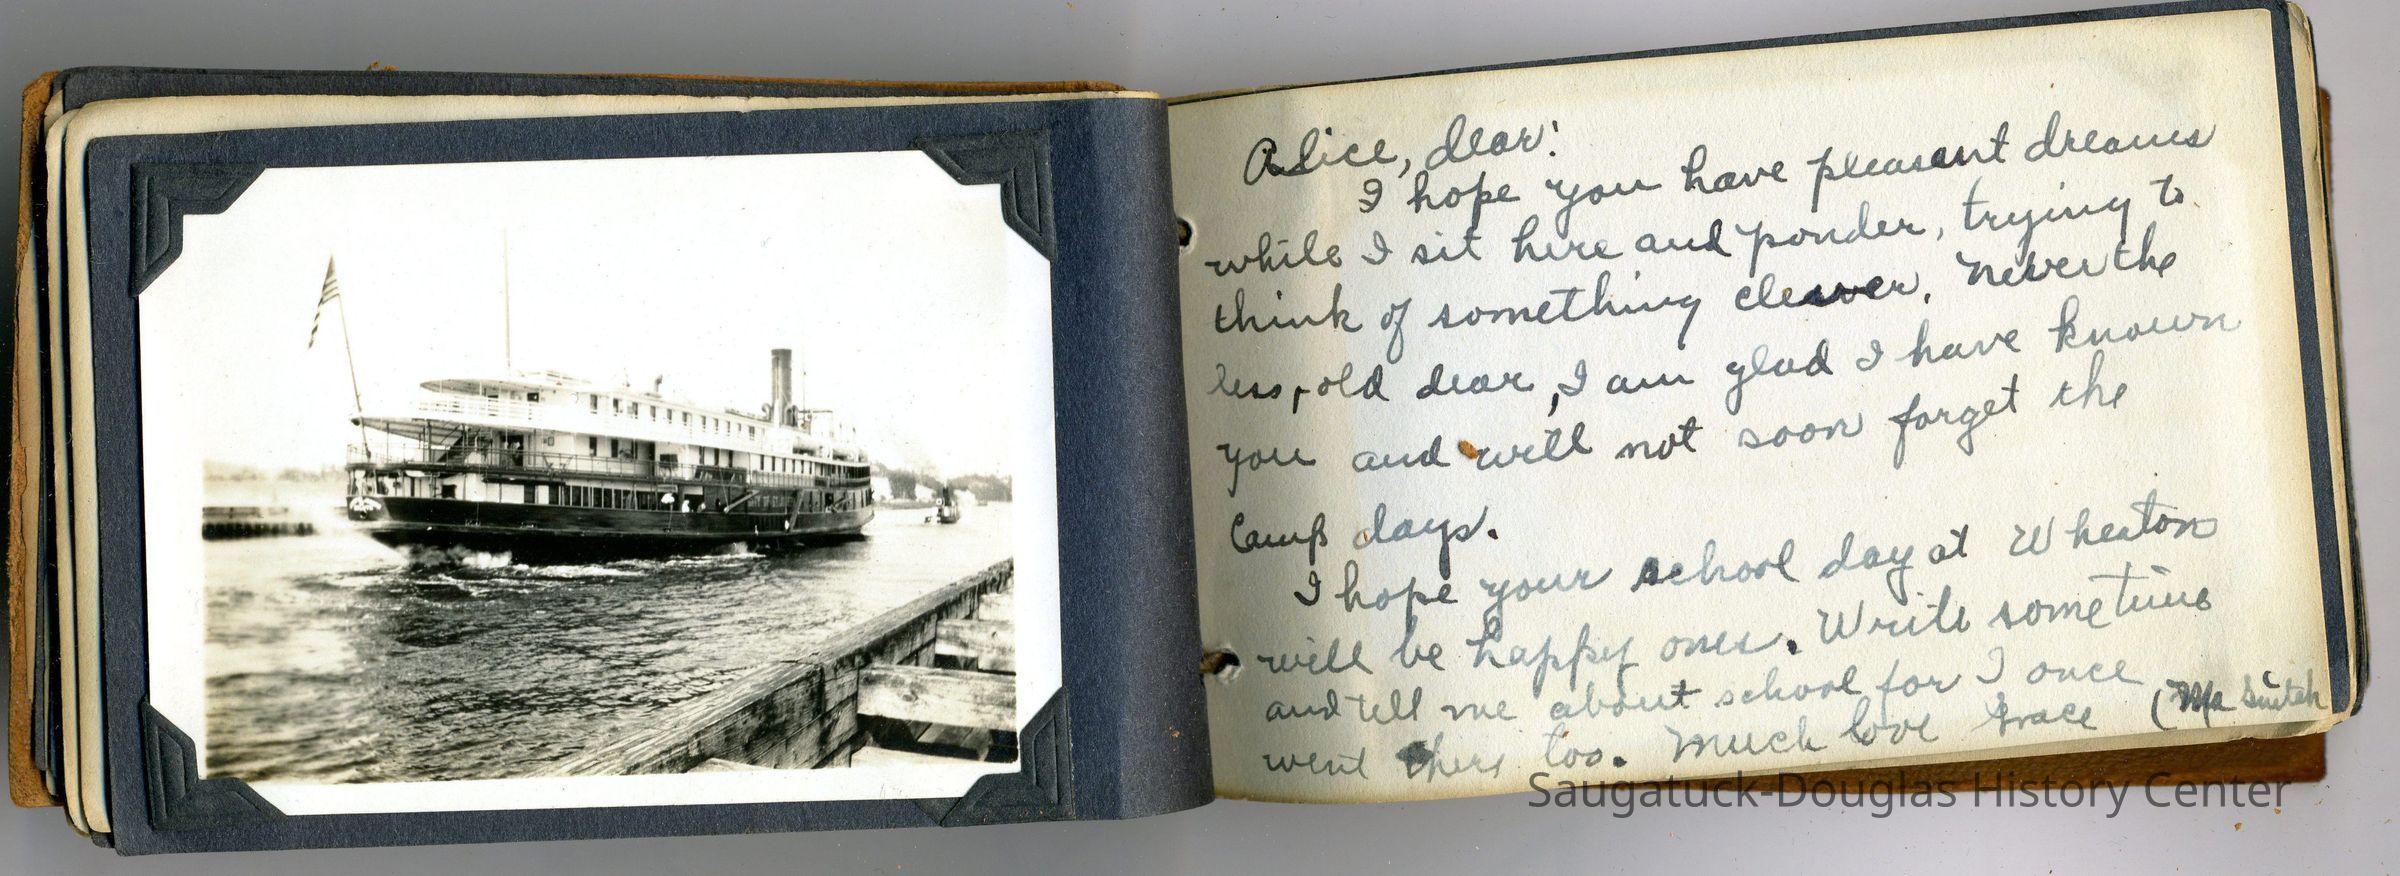 Alice, dear:
I hope you have pleasant dreams
while I sit here and ponder, trying to
think of something clever. Never the
less, old dear, I am glad I have known
you and will not soon forget the
Camp days.
I hope your school day at Wheaton
will be happy ones. Write sometime
and tell me about school for I once
went there too. Much love Grace (Ma
Saugatuck-Douglas History Center